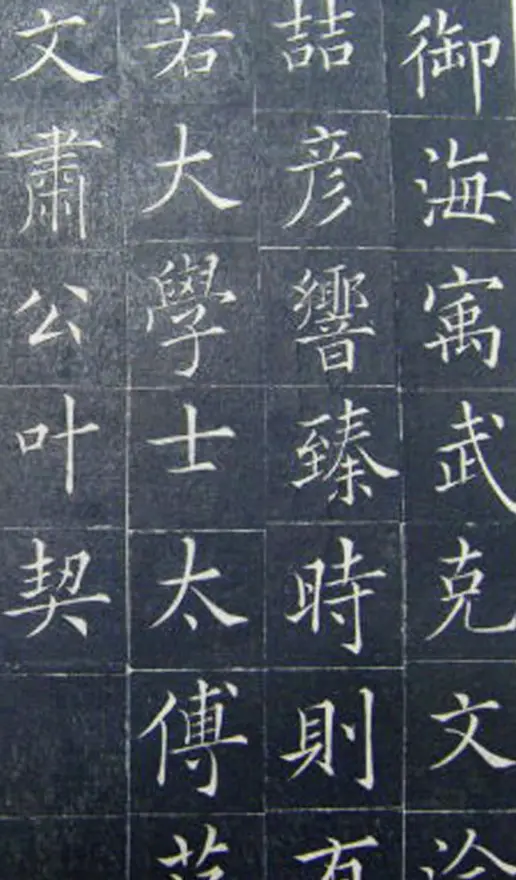 御海寓武克文
喆彦響臻時則有
若大學士太傅范
文肅公叶契